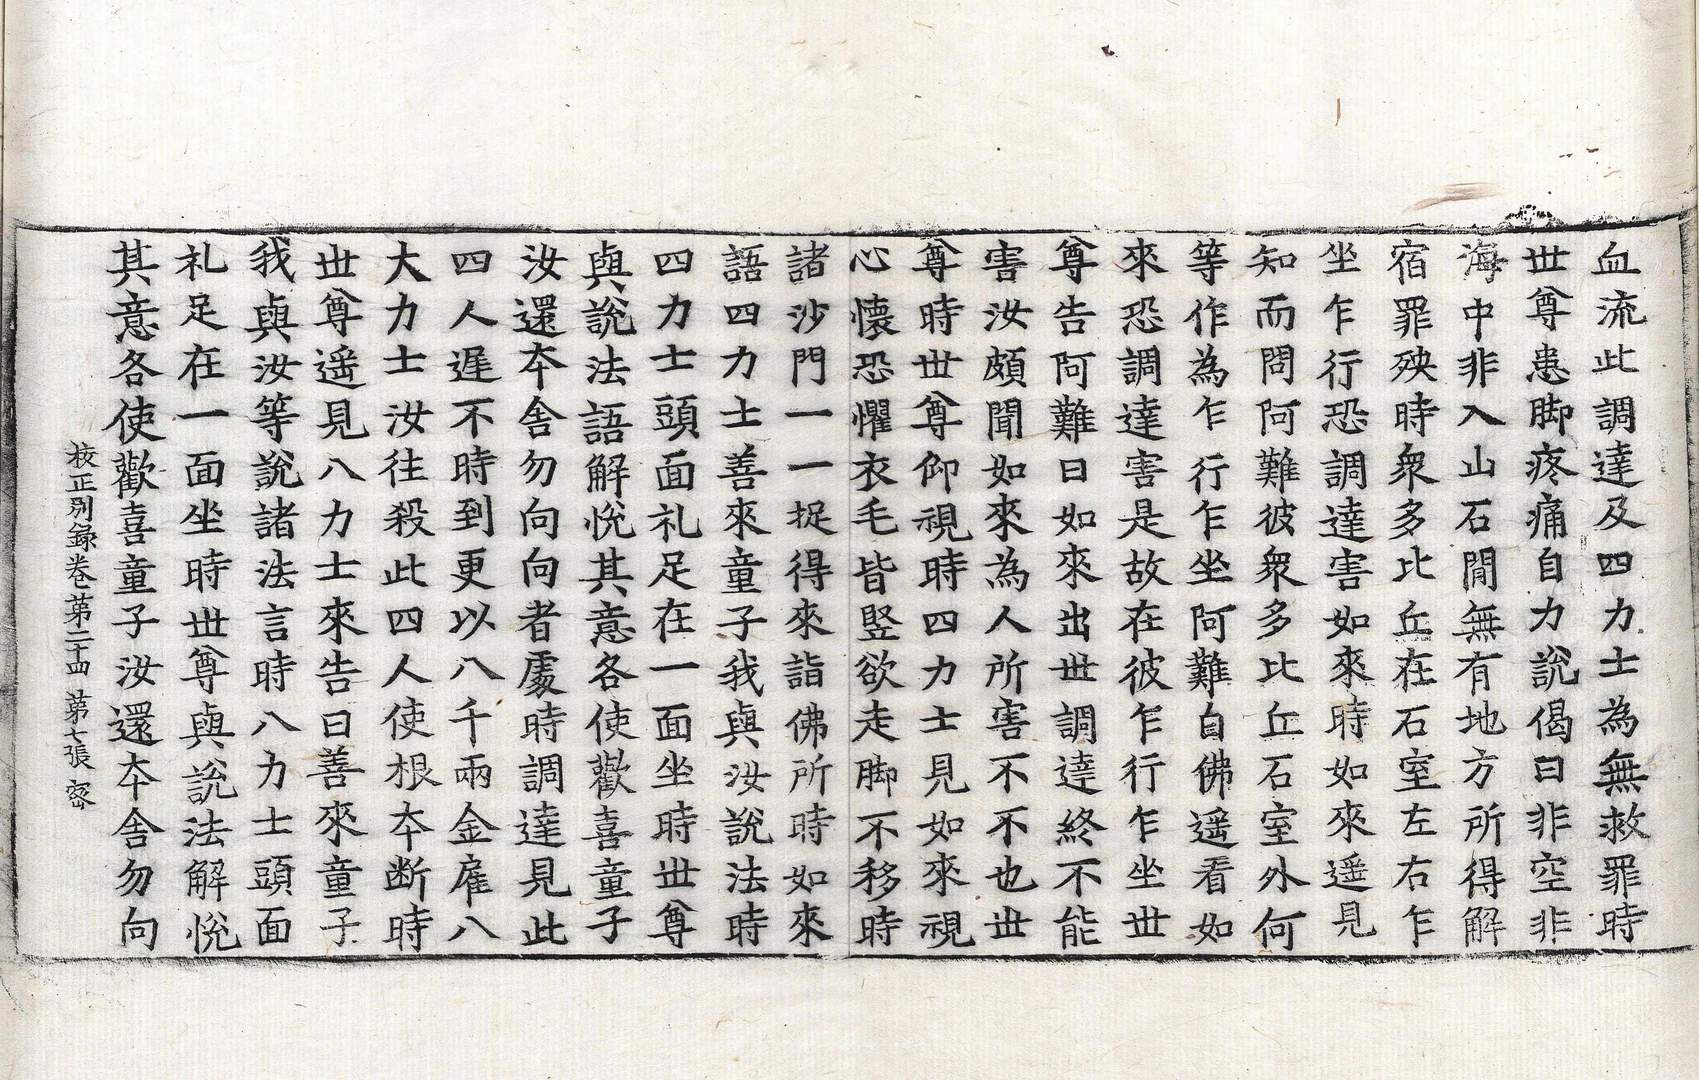 血流此調達及四力士為無救罪時
世尊患脚疼痛自力說偈曰非空非
海中非入山石間無有地方所得解
宿罪殃時衆多比丘在石室左右乍
坐乍行恐調達害如來時如來遥見
知而問阿難彼衆多比丘石室外何
等作為乍行乍坐阿難白佛遥看如
來恐調達害是故在彼乍行乍坐世
尊告阿難曰如來出世調達終不能
害汝頗聞如來為人所害不不也世
尊時世尊仰視時四力士見如來視
心懷恐懼衣毛皆竪欲走脚不移時
諸沙門一一捉得來詣佛所時如來
語四力士善來童子我與汝說法時
四力士頭面礼足在一面坐時世尊
與說法語解悅其意各使歡喜童子
汝還夲舍勿向向者處時調達見此
四人遅不時到更以八千兩金雇八
大力士汝往殺此四人使根夲断時
世尊遥見八力士來告曰善來童子
我與汝等說諸法言時八力士頭面
礼足在一面坐時世尊與說法解悅
其意各使歡喜童子汝還夲舍勿向
校正別錄卷第二十四 第七張 密